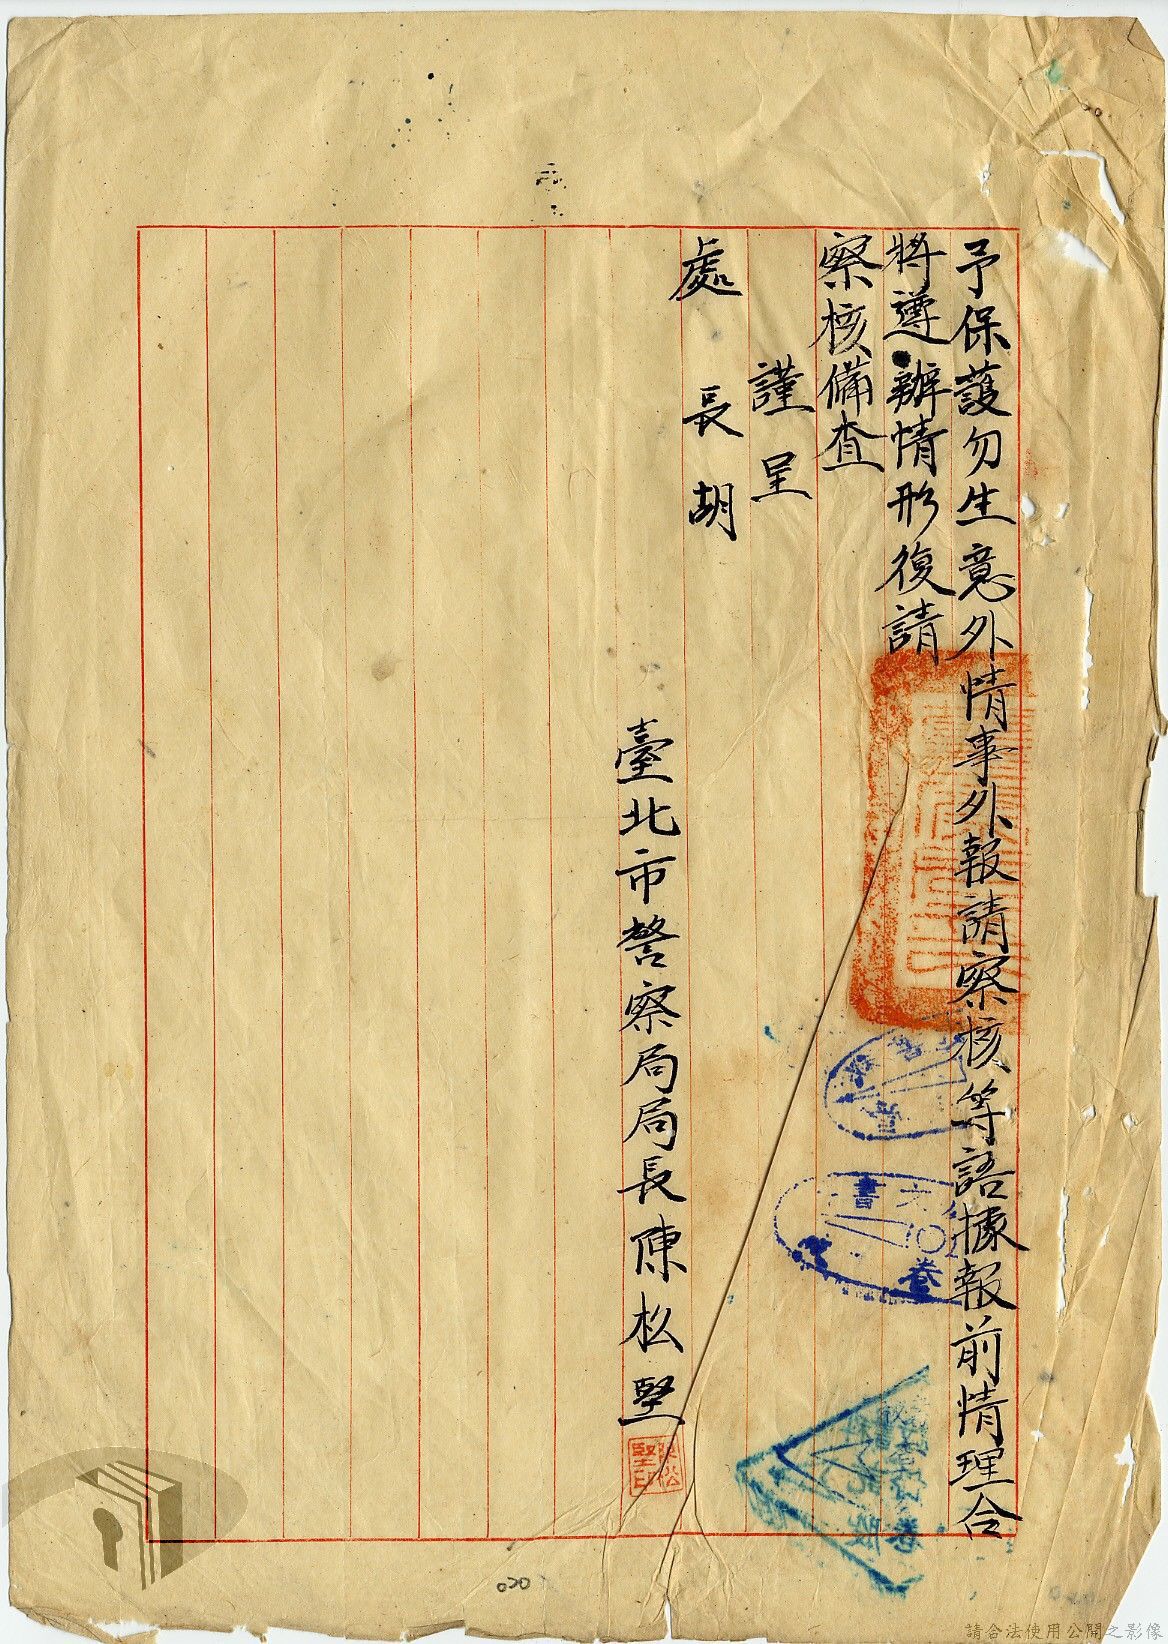 予保護勿生意外情事外報請察核等語據報前情理合
將遵辦情形復請
察核備查
謹呈
處長胡
臺北市警察局局長陳松堅
陳松堅印
文書
卷
020
請合法使用公開之影像